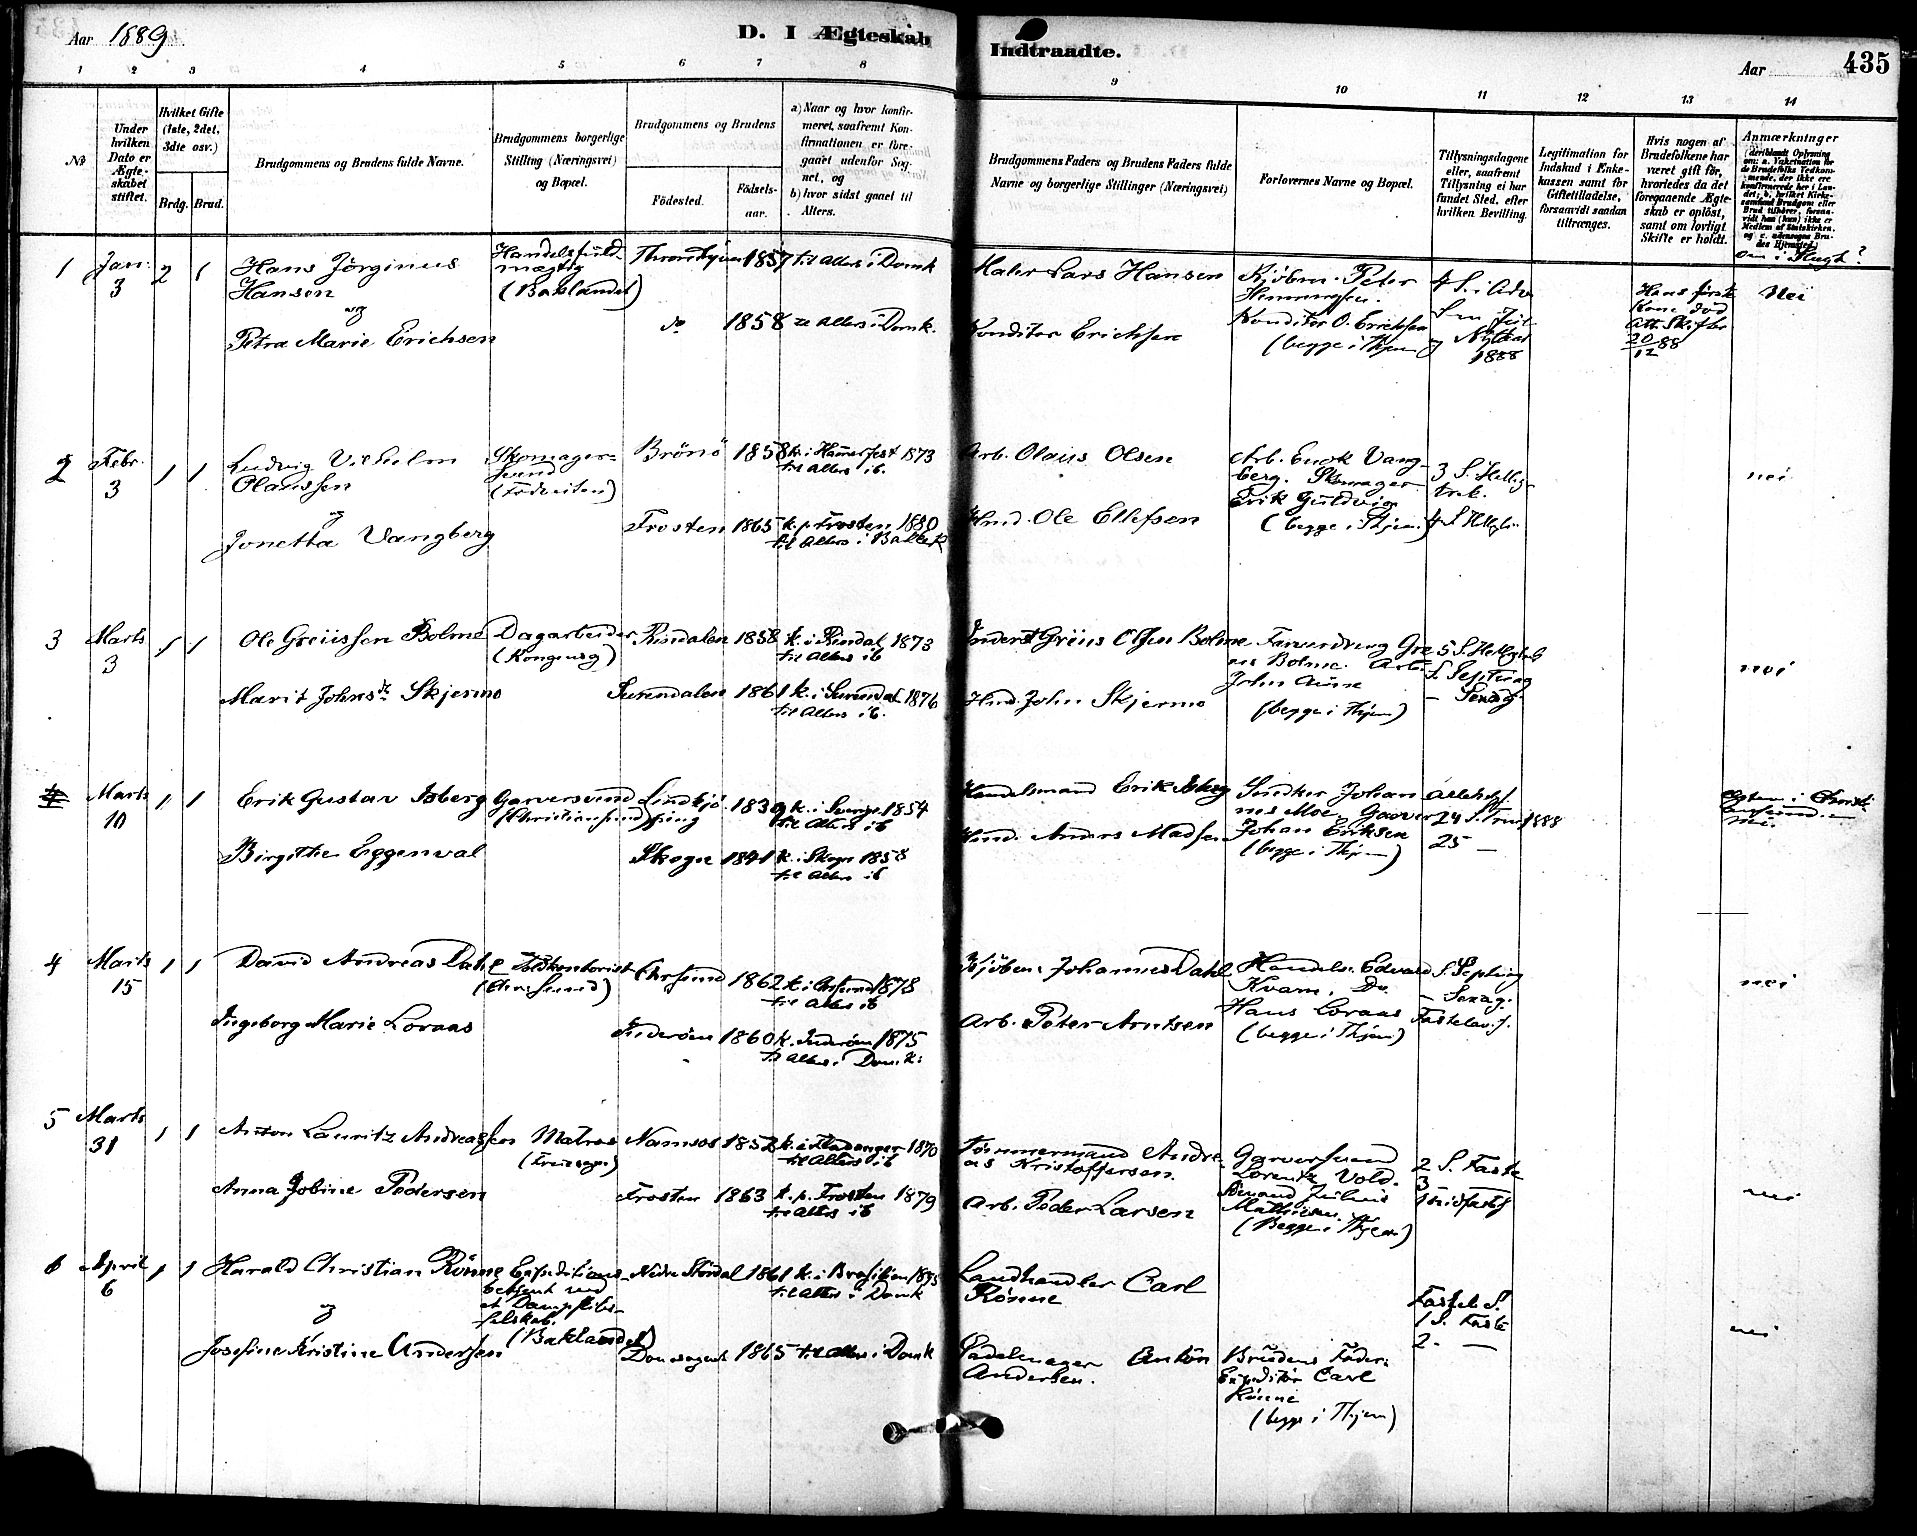 Aar 1889
D. I Ægteskab
Indtraadte.
Aar
435
1 2 3 4 5 6 7 8 9 10 11 12 13 14
No
Under hvilken Dato er Ægteskabet stiftet.
Hvilket Gifte (1ste, 2det, 3die osv.)
Brdg. Brud.
Brudgommens og Brudens fulde Navne.
Brudgommens borgerlige Stilling (Næringsvei) og Bopæl.
Brudgommens og Brudens
Födested.
Födsels-aar.
a) Naar og hvor konfir-
meret, saafremt Kon-
firmationen er fore-
gaaet udenfor Sog-
net, og
b) hvor sidst gaaet til
Alters.
Brudgommens Faders og Brudens Faders fulde
Navne og borgerlige Stillinger (Næringsvei)
Forlovernes Navne og Bopæl.
Tillysningsdagene
eller, saafremt
Tillysning ei har
fundet Sted, efter
hvilken Bevilling.
Legitimation for
Indskud i Enke-
kassen samt for
Giftetilladelse,
forsaavidt saadan
tiltrænges.
Hvis nogen af
Brudefolkene har
været gift för,
hvorledes da det
foregaaende Ægte-
skab er oplöst,
samt om lovligt
Skifte er holdt.
Anmærkninger
om i Slægt?
1 Jan. 3 2 1
Hans Jörginus
Hansen
og
Petra Marie Erichsen
Handelsfuld-
mægtig
(Baklandet)
Throndhjem 1857 til Alters i Domk
do 1858 til Alters i Domk.
Maler Lars Hansen
Konditor Erichsen
Kjöbm. Peter
Hemmingsen.
Konditor O. Erichsen
(begge i Thjem)
4 S. i Adv
S. Jul
Nytaar
1888
Hans förste
Kone död
Att. Skifter
20/12 88
Nei
2 Febr. 3 1 1
Ludvig Vilhelm
Olaussen
og
Jonetta Vangberg
Skomager-
svend
Brönö 1858 k. i Hamerfest 1873
til Alters ib.
Frosten 1865 k. p. Frosten 1880
til Alters i Bakke K
Arb. Olaus Olsen
Hmd. Ole Ellefsen
Arb. Enok Vang-
berg. Skomager
Erik Guldvig
(begge i Thjem.)
3 S. Hellig-
trek.
4 S. Helligtr.
nei
3 Marts 3 1 1
Ole Greiissen Bolme
Marit Johnsdr. Skjermo
Dagarbeider
(Kongensg)
Rindalen 1858 k. i Rindal 1873
til Alters ib
Surendalen 1861 k. i Surendal 1876
til Alters ib.
Inderst Griis Olsen Bolme
Hmd. John Skjermo
Bolme. Arb.
John Aune
(begge i Thjem)
5 S. Helligtr.
S. Septuag
- Sexag.
nei
4 Marts 10 1 1
Erik Gustav Isberg
Birgithe Eggenval
Garversvend
(Christiansund)
Lindkjö-
ping 1839 k. i Sverige 1854
til Alters ib
Skogn 1841 k. i Skogn 1858
til Alters ib
Handelsmand Erik Isberg
Hmd. Anders Madsen
Snedker Johan-
nes Moe. Garver
Johan Eriksen
(begge i Thjem)
24 S. Trin. 1888
25 -
nei.
4 Marts 15 1 1
David Andreas Dahl
Ingeborg Marie Loraas
Toldkontorist
(Chr.sund)
Chrsund 1862 k. i Chrsund 1878
til Alters ib
Inderöen 1860 k. Inderöen 1875
til Alters i Dom K.
Kjöbm. Johannes Dahl
Arb. Peter Arntsen
Handelsm. Edvard
Kvam. Do.
Hans Loraas
(begge i Thjem)
S. Septuag
- Sexag.
Fastelav. S.
nei
5 Marts 31 1 1
Anton Lauritz Andreassen
Anna Jobine Pedersen
Matros
Namsos 1852 k. i Fladanger 1870
til Alters ib
Frosten 1863 k. p. Frosten 1879
til Alters ib
Tömmermand Andre-
as Kristoffersen.
Arb. Peder Larsen
Garversvend
Lorentz Vold.
Julius
Mathisen.
(Begge i Thjem)
2 S. Faste
3 -
Midfaste S
nei
6 April 6 1 1
Harald Christian Rönne
og
Josefine Kristine Andersen
Expeditions-
betjent ved
et Dampskibs-
selskab.
(Baklandet)
Nedre Stördal 1861 k. i
til Alters i Domk
1865 til Alters i Domk
Landhandler Carl
Rönne
Sadelmager Anton
Andersen.
Brudens Fader.
Expeditör Carl
Rönne
(begge i Thjem)
Fastel. S.
1 S. Faste
2 -
nei